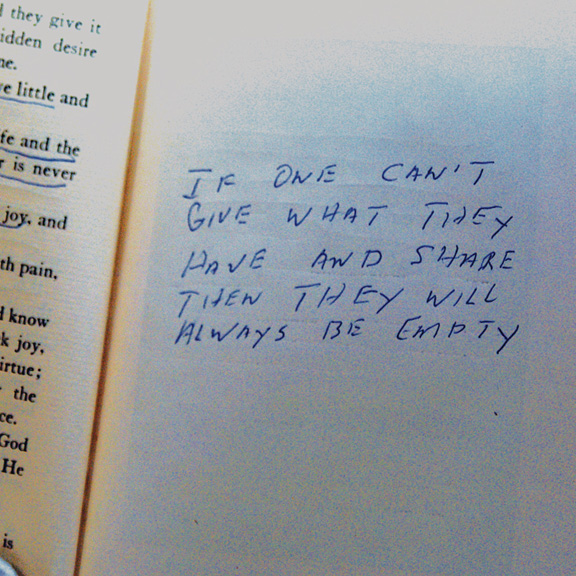 they give it
desire
little and
and the
is never
joy, and
pain,
know
joy,
the
God
He
is
IF ONE CAN'T
GIVE WHAT THEY
HAVE AND SHARE
THEN THEY WILL
ALWAYS BE EMPTY